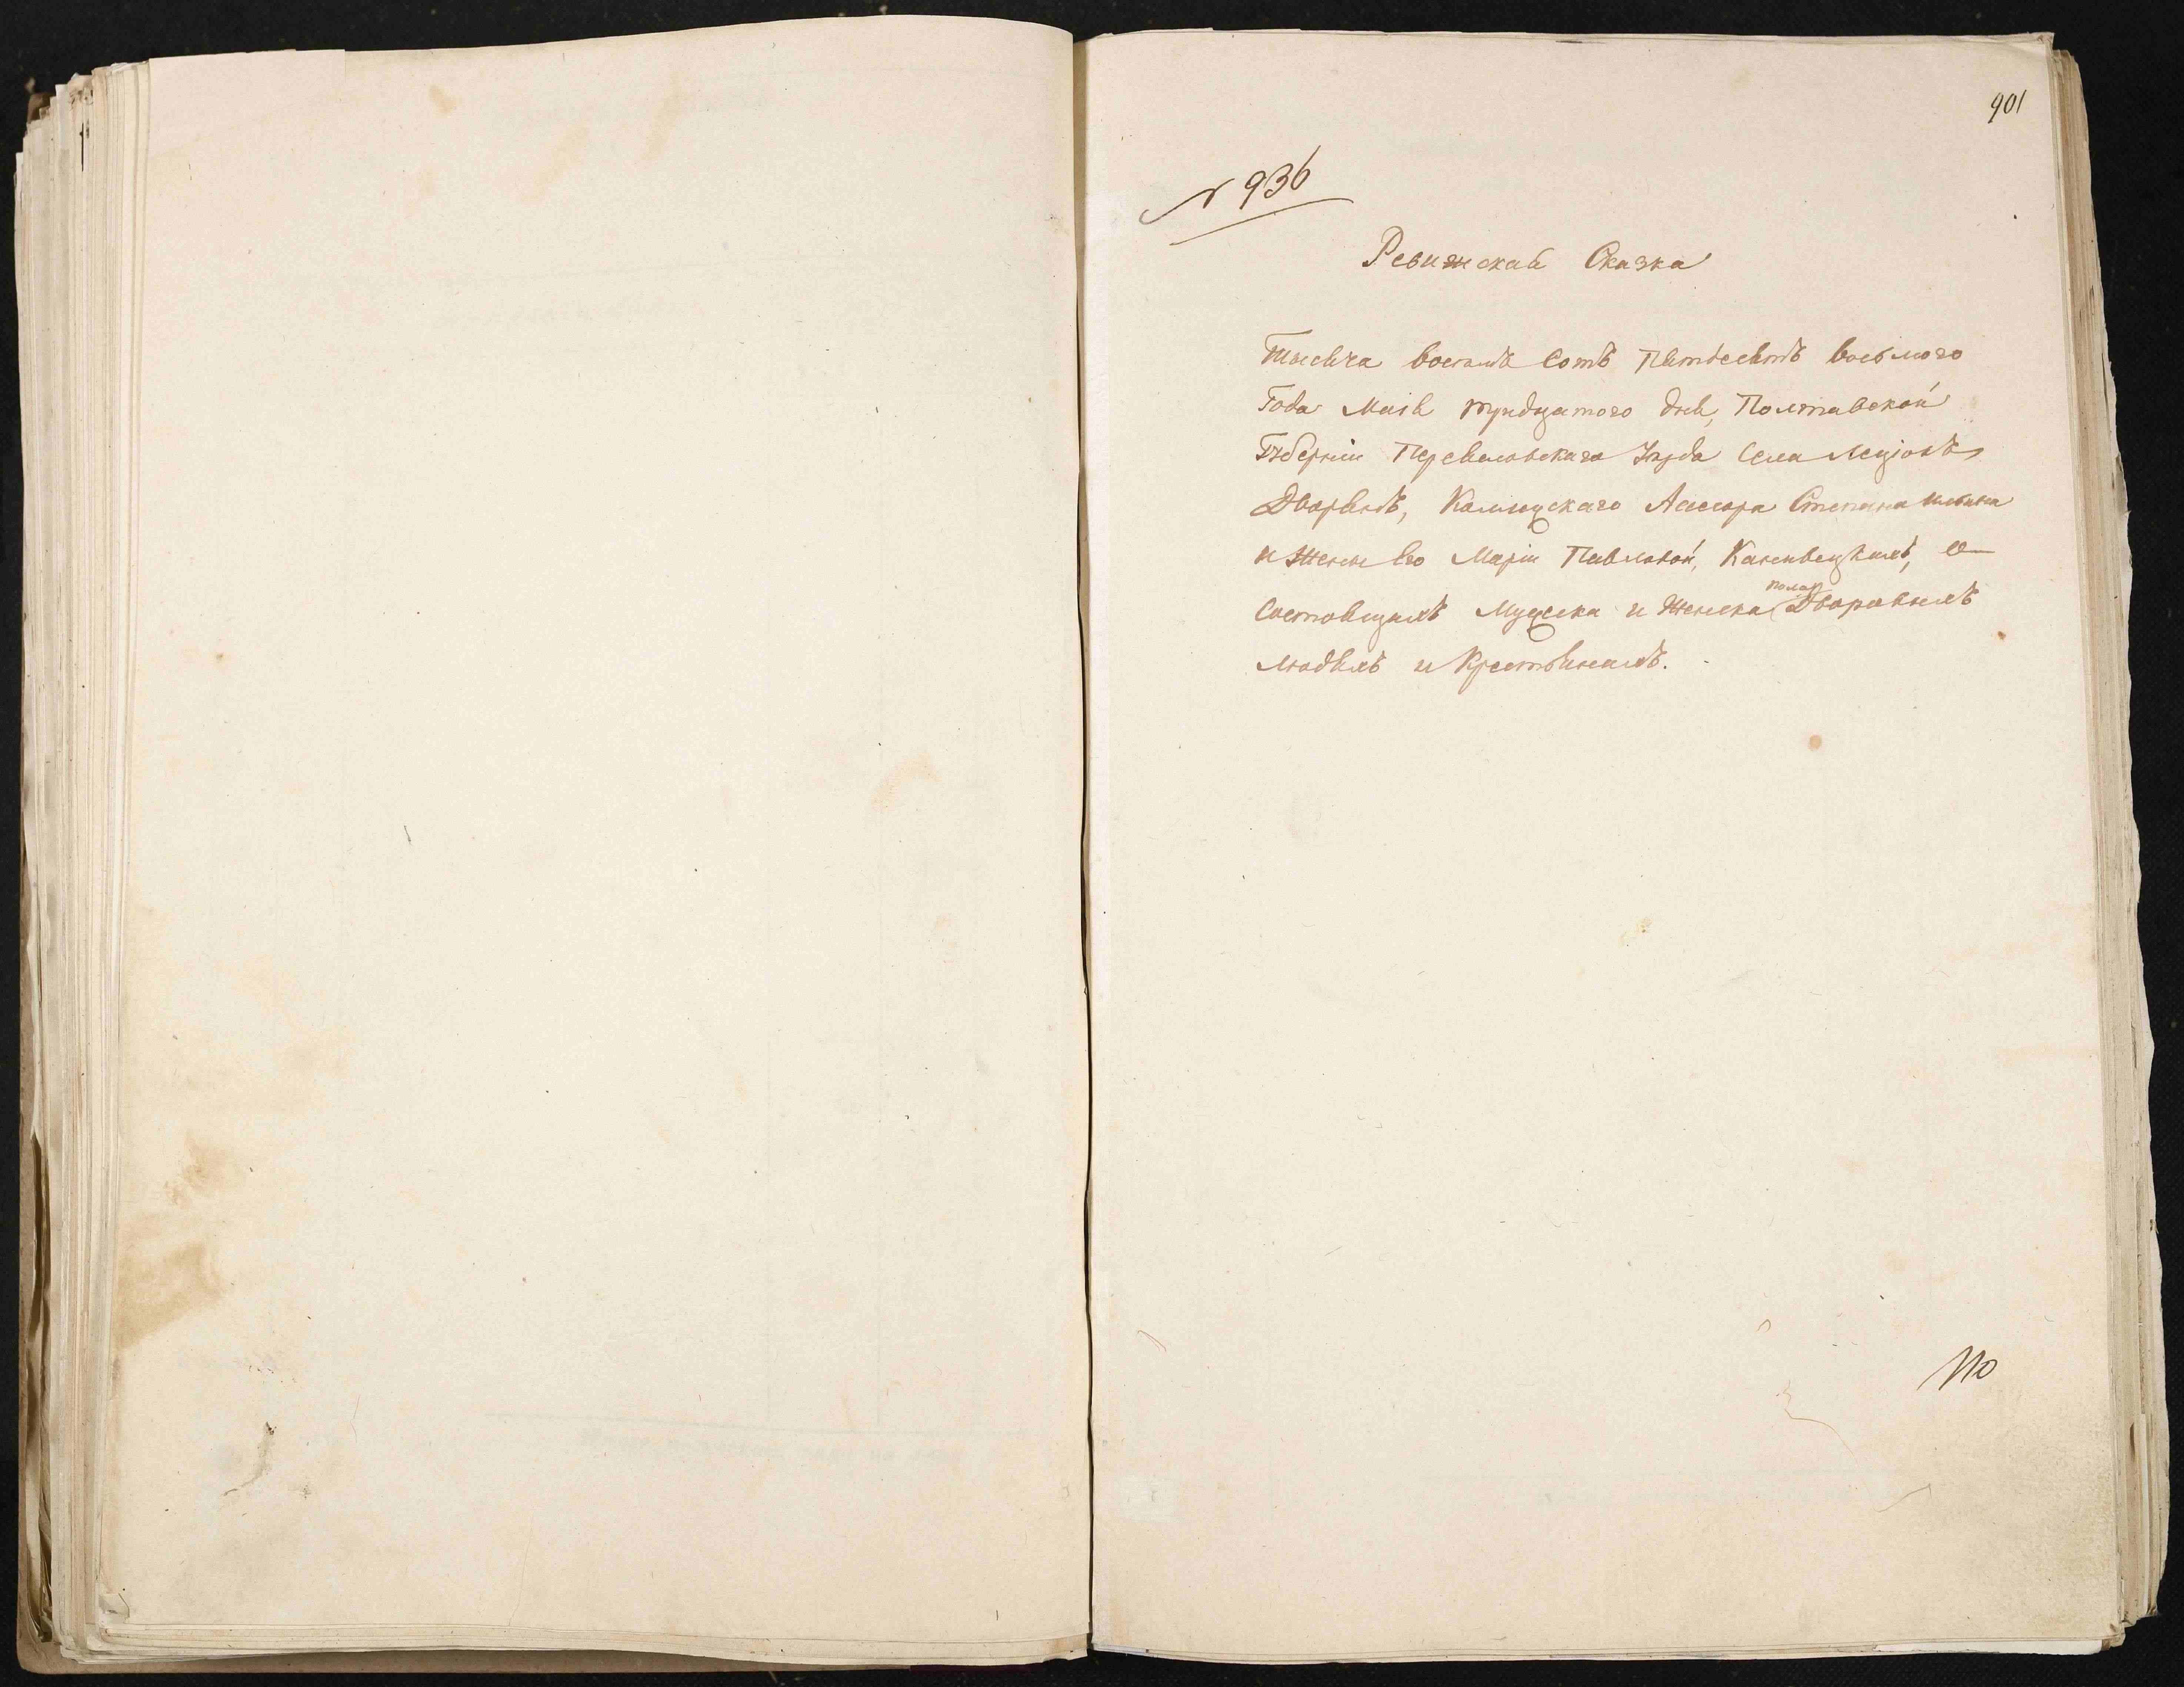 901
№ 936
Ревижская Сказка
Тысяча восемь Сотъ Пятдесятъ восьмого
Года Маія тридцатого дня, Полтавской
Губерніи Переяловскаго Уезда Села Лецокъ
Дворянъ, Колиежскаго Асесора Степана
и Жены его Маріи Павловой, о
Состоящихъ Мужеска и Женска пола Дворовыхъ
людяхъ и Крестьянахъ.